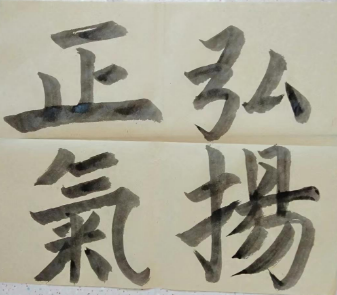 弘揚
正氣